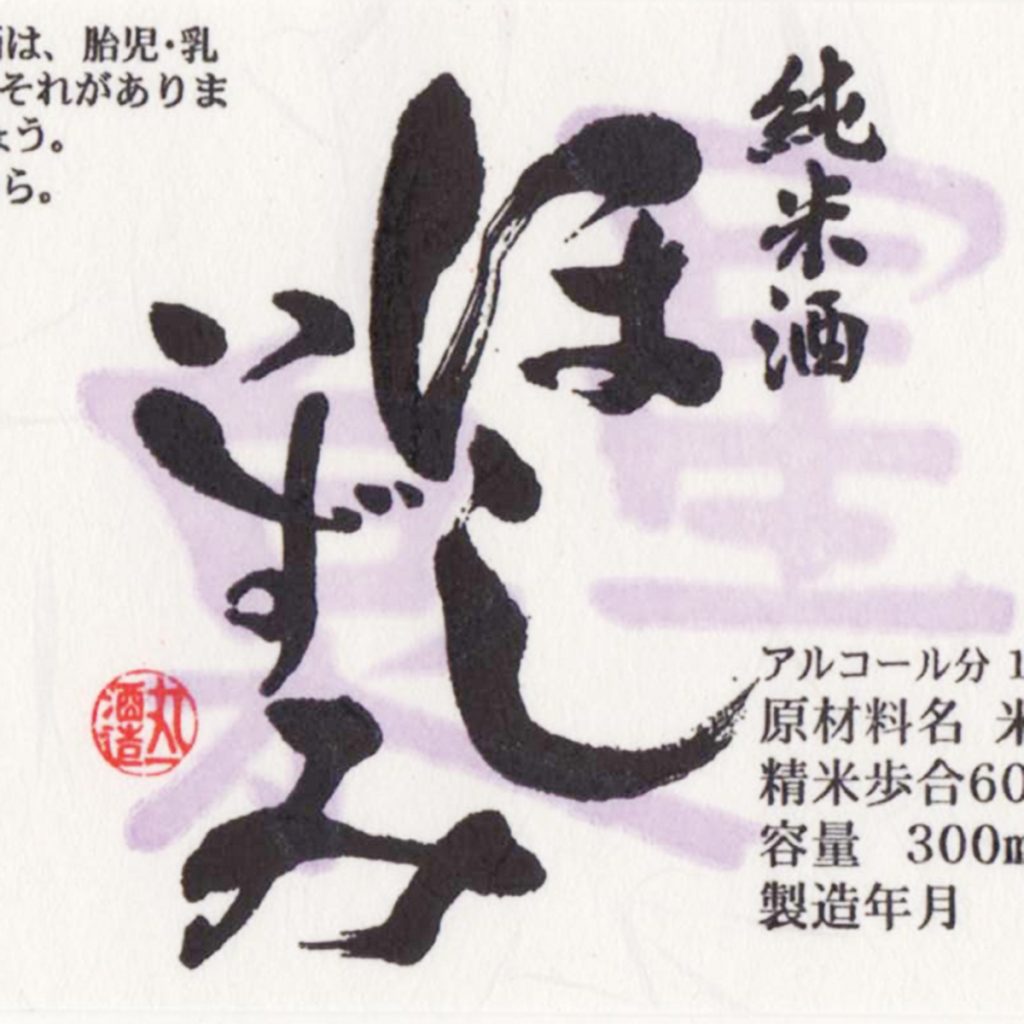 純米酒
ほし
いずみ
は、胎児・乳
それがありま
ょう。
ら。
丸一
酒造
アルコール分 1
原材料名 米
精米歩合60
容量 300m
製造年月